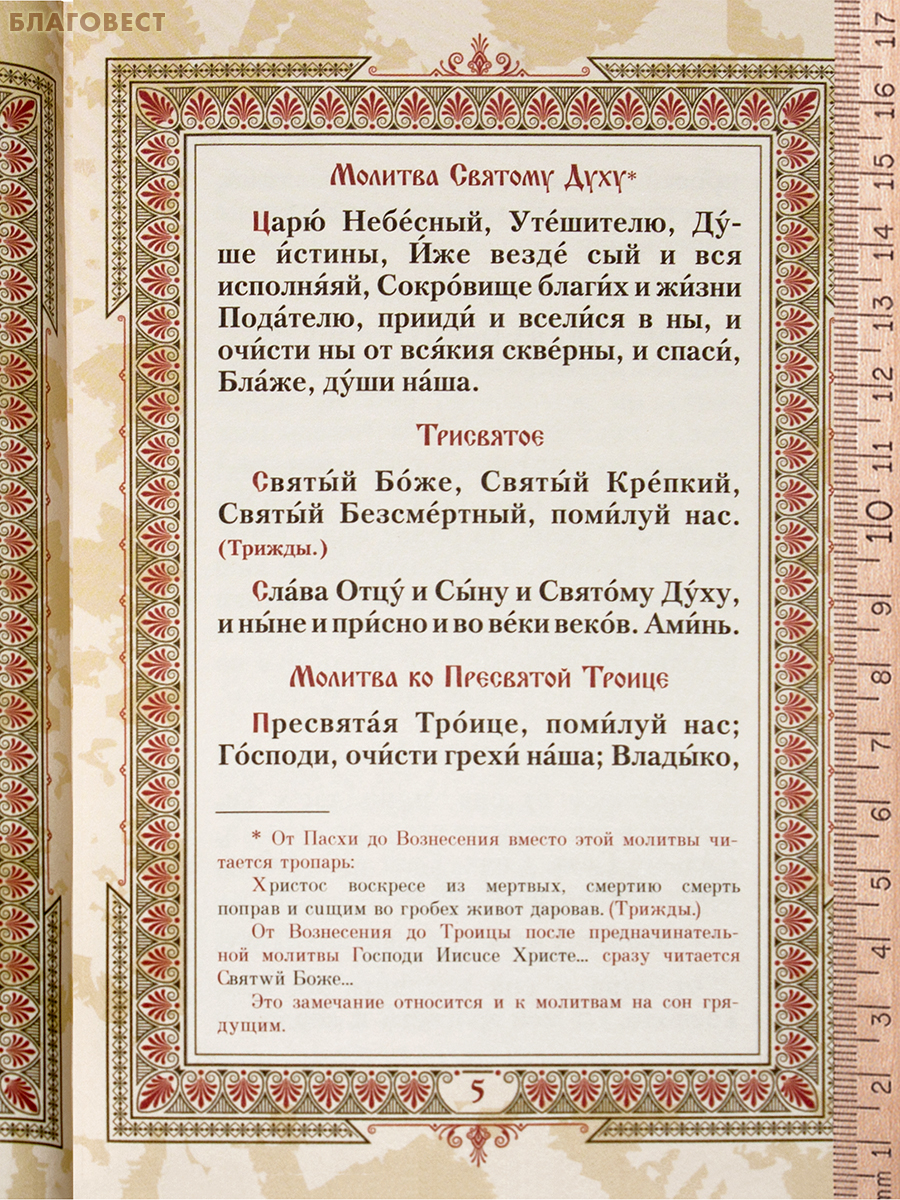 БЛАГОВЕСТ
Молитва Святому Духу*
Царю́ Небе́сный, Уте́шителю, Ду́-
ше и́стины, И́же везде́ сый и вся
исполня́яй, Сокро́вище благи́х и жи́зни
Пода́телю, прииди́ и всели́ся в ны, и
очи́сти ны от вся́кия скве́рны, и спаси́,
Бла́же, ду́ши на́ша.
Трисвятое
Святы́й Бо́же, Святы́й Кре́пкий,
Святы́й Безсме́ртный, поми́луй нас.
(Трижды.)
Сла́ва Отцу́ и Сы́ну и Свято́му Ду́ху,
и ны́не и при́сно и во ве́ки веко́в. Ами́нь.
Молитва ко Пресвятой Троице
Пресвята́я Тро́ице, поми́луй нас;
Го́споди, очи́сти грехи́ на́ша; Влады́ко,
* От Пасхи до Вознесения вместо этой молитвы чи-
тается тропарь:
Христос воскресе из мертвых, смертию смерть
поправ и сищим во гробех живот даровав. (Трижды.)
От Вознесения до Троицы после предначинатель-
ной молитвы Господи Иисисе Христе... сразу читается
Святwй Боже...
Это замечание относится и к молитвам на сон гря-
дущим.
5
17
16
15
14
13
12
11
10
9
8
7
6
5
4
3
2
1
mm